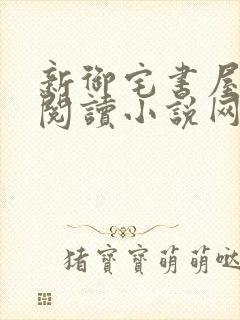 新御宅書屋
閱讀小說网
猪寶寶萌萌哒